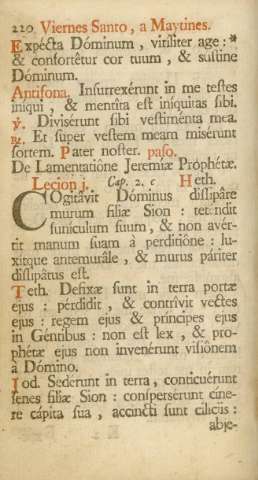 220 Viernes Santo, a Maytines.
Expécta Dóminum, viriliter age: *
& confortétur cor tuum, & sustine
Dóminum.
Antifona. Insurrexérunt in me testes
iniqui, & mentíta est iníquitas sibi.
℣. Divisérunt sibi vestiménta mea.
℟. Et super vestem meam misérunt
sortem. Pater noster. paso.
De Lamentatióne Jeremiæ Prophétæ.
Lecion j. Cap. 2. c Heth.
COgitávit Dóminus dissipáre
murum filiæ Sion: teténdit
funiculum suum, & non avér-
tit manum suam à perditióne: lu-
xitque antemurále, & murus páriter
dissipátus est.
Teth. Defixæ sunt in terra portæ
ejus: pérdidit, & contrívit vectes
ejus: regem ejus & príncipes ejus
in Géntibus: non est lex, & pro-
phétæ ejus non invenérunt visiónem
à Dómino.
Iod. Sedérunt in terra, conticuérunt
senes filiæ Sion: conspersérunt cíne-
re cápita sua, accíncti sunt cilíciis:
abje-